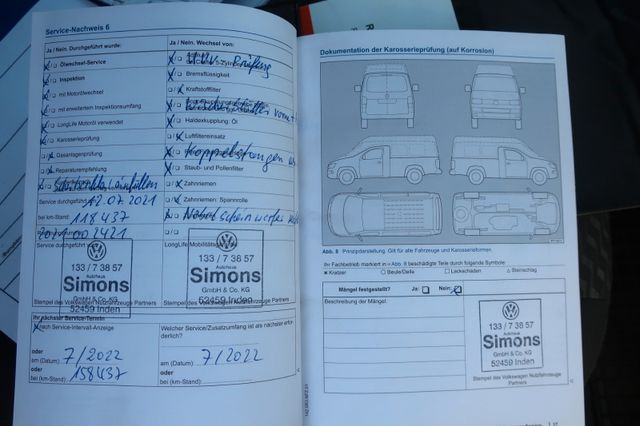 Service-Nachweis 6
Ja / Nein. Durchgeführt wurde:
Ölwechsel-Service
Inspektion
mit Motorölwechsel
mit erweitertem Inspektionsumfang
LongLife Motoröl verwendet
Karosserieprüfung
Gasanlagenprüfung
Reparaturempfehlung
Service durchgeführt
12.07.2021
bei km-Stand:
118437
133 / 7 38 57
Autohaus
Simons
GmbH & Co. KG
52459 Inden
Stempel des Volkswagen Nutzfahrzeuge Partners
Ja / Nein. Wechsel von:
HU Prüfung
Bremsflüssigkeit
Kraftstofffilter
Haldexkupplung: Öl
Luftfiltereinsatz
Koppelstangen
Staub- und Pollenfilter
Zahnriemen
Zahnriemen: Spannrolle
LongLife Mobilitäts
133 / 7 38 57
Autohaus
Simons
GmbH & Co. KG
52459 Inden
Stempel des Volkswagen Nutzfahrzeuge Partners
Ihr nächster Service-Termin
nach Service-Intervall-Anzeige
oder
am (Datum) 7/2022
oder
bei (km-Stand): 158437
Welcher Service/Zusatzumfang ist als nächster erforderlich?
am (Datum) 7/2022
bei (km-Stand):
Dokumentation der Karosserieprüfung (auf Korrosion)
Abb. 8 Prinzipdarstellung. Gilt für alle Fahrzeuge und Karosserieformen.
Ihr Fachbetrieb markiert in Abb. 8 beschädigte Teile durch folgende Symbole:
x Kratzer ○ Beule/Delle □ Lackschäden △ Steinschlag
Mängel festgestellt? Ja: Nein:
Beschreibung der Mängel:
133 / 7 38 57
Autohaus
Simons
GmbH & Co. KG
52459 Inden
Stempel des Volkswagen Nutzfahrzeuge
Partners